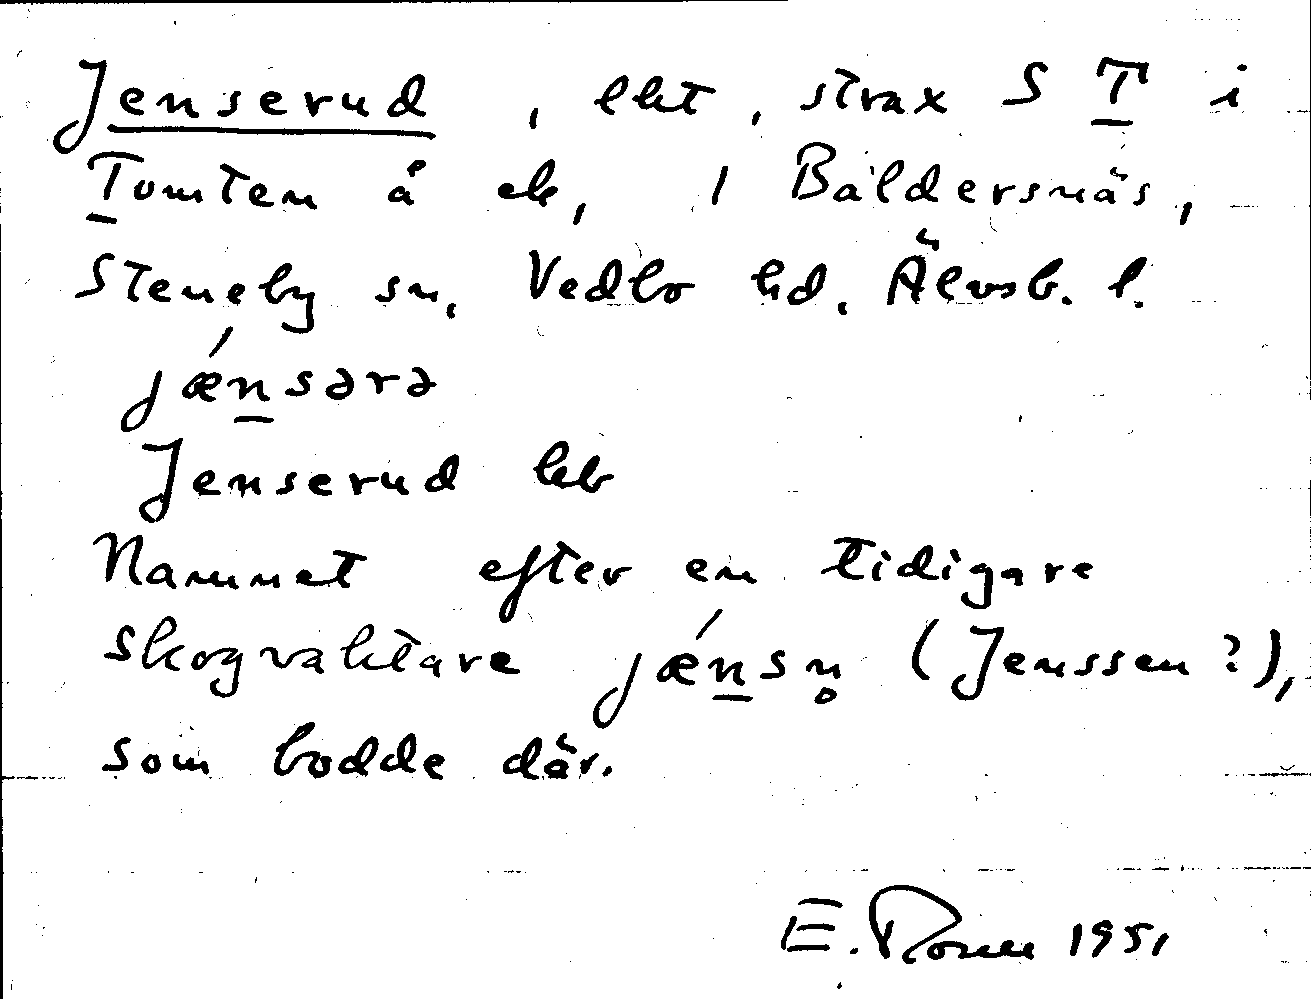 Jenserud, lht, strax S T i
Tomten å ek, 1 Baldersnäs,
Steneby sn, Vedbo hd. Älvsb. l.
jǽnsərə
Jenserud kb
Namnet efter en tidigare
skogvaktare jǽnsn̥ (Jenssen?),
som bodde där.
E. 1951